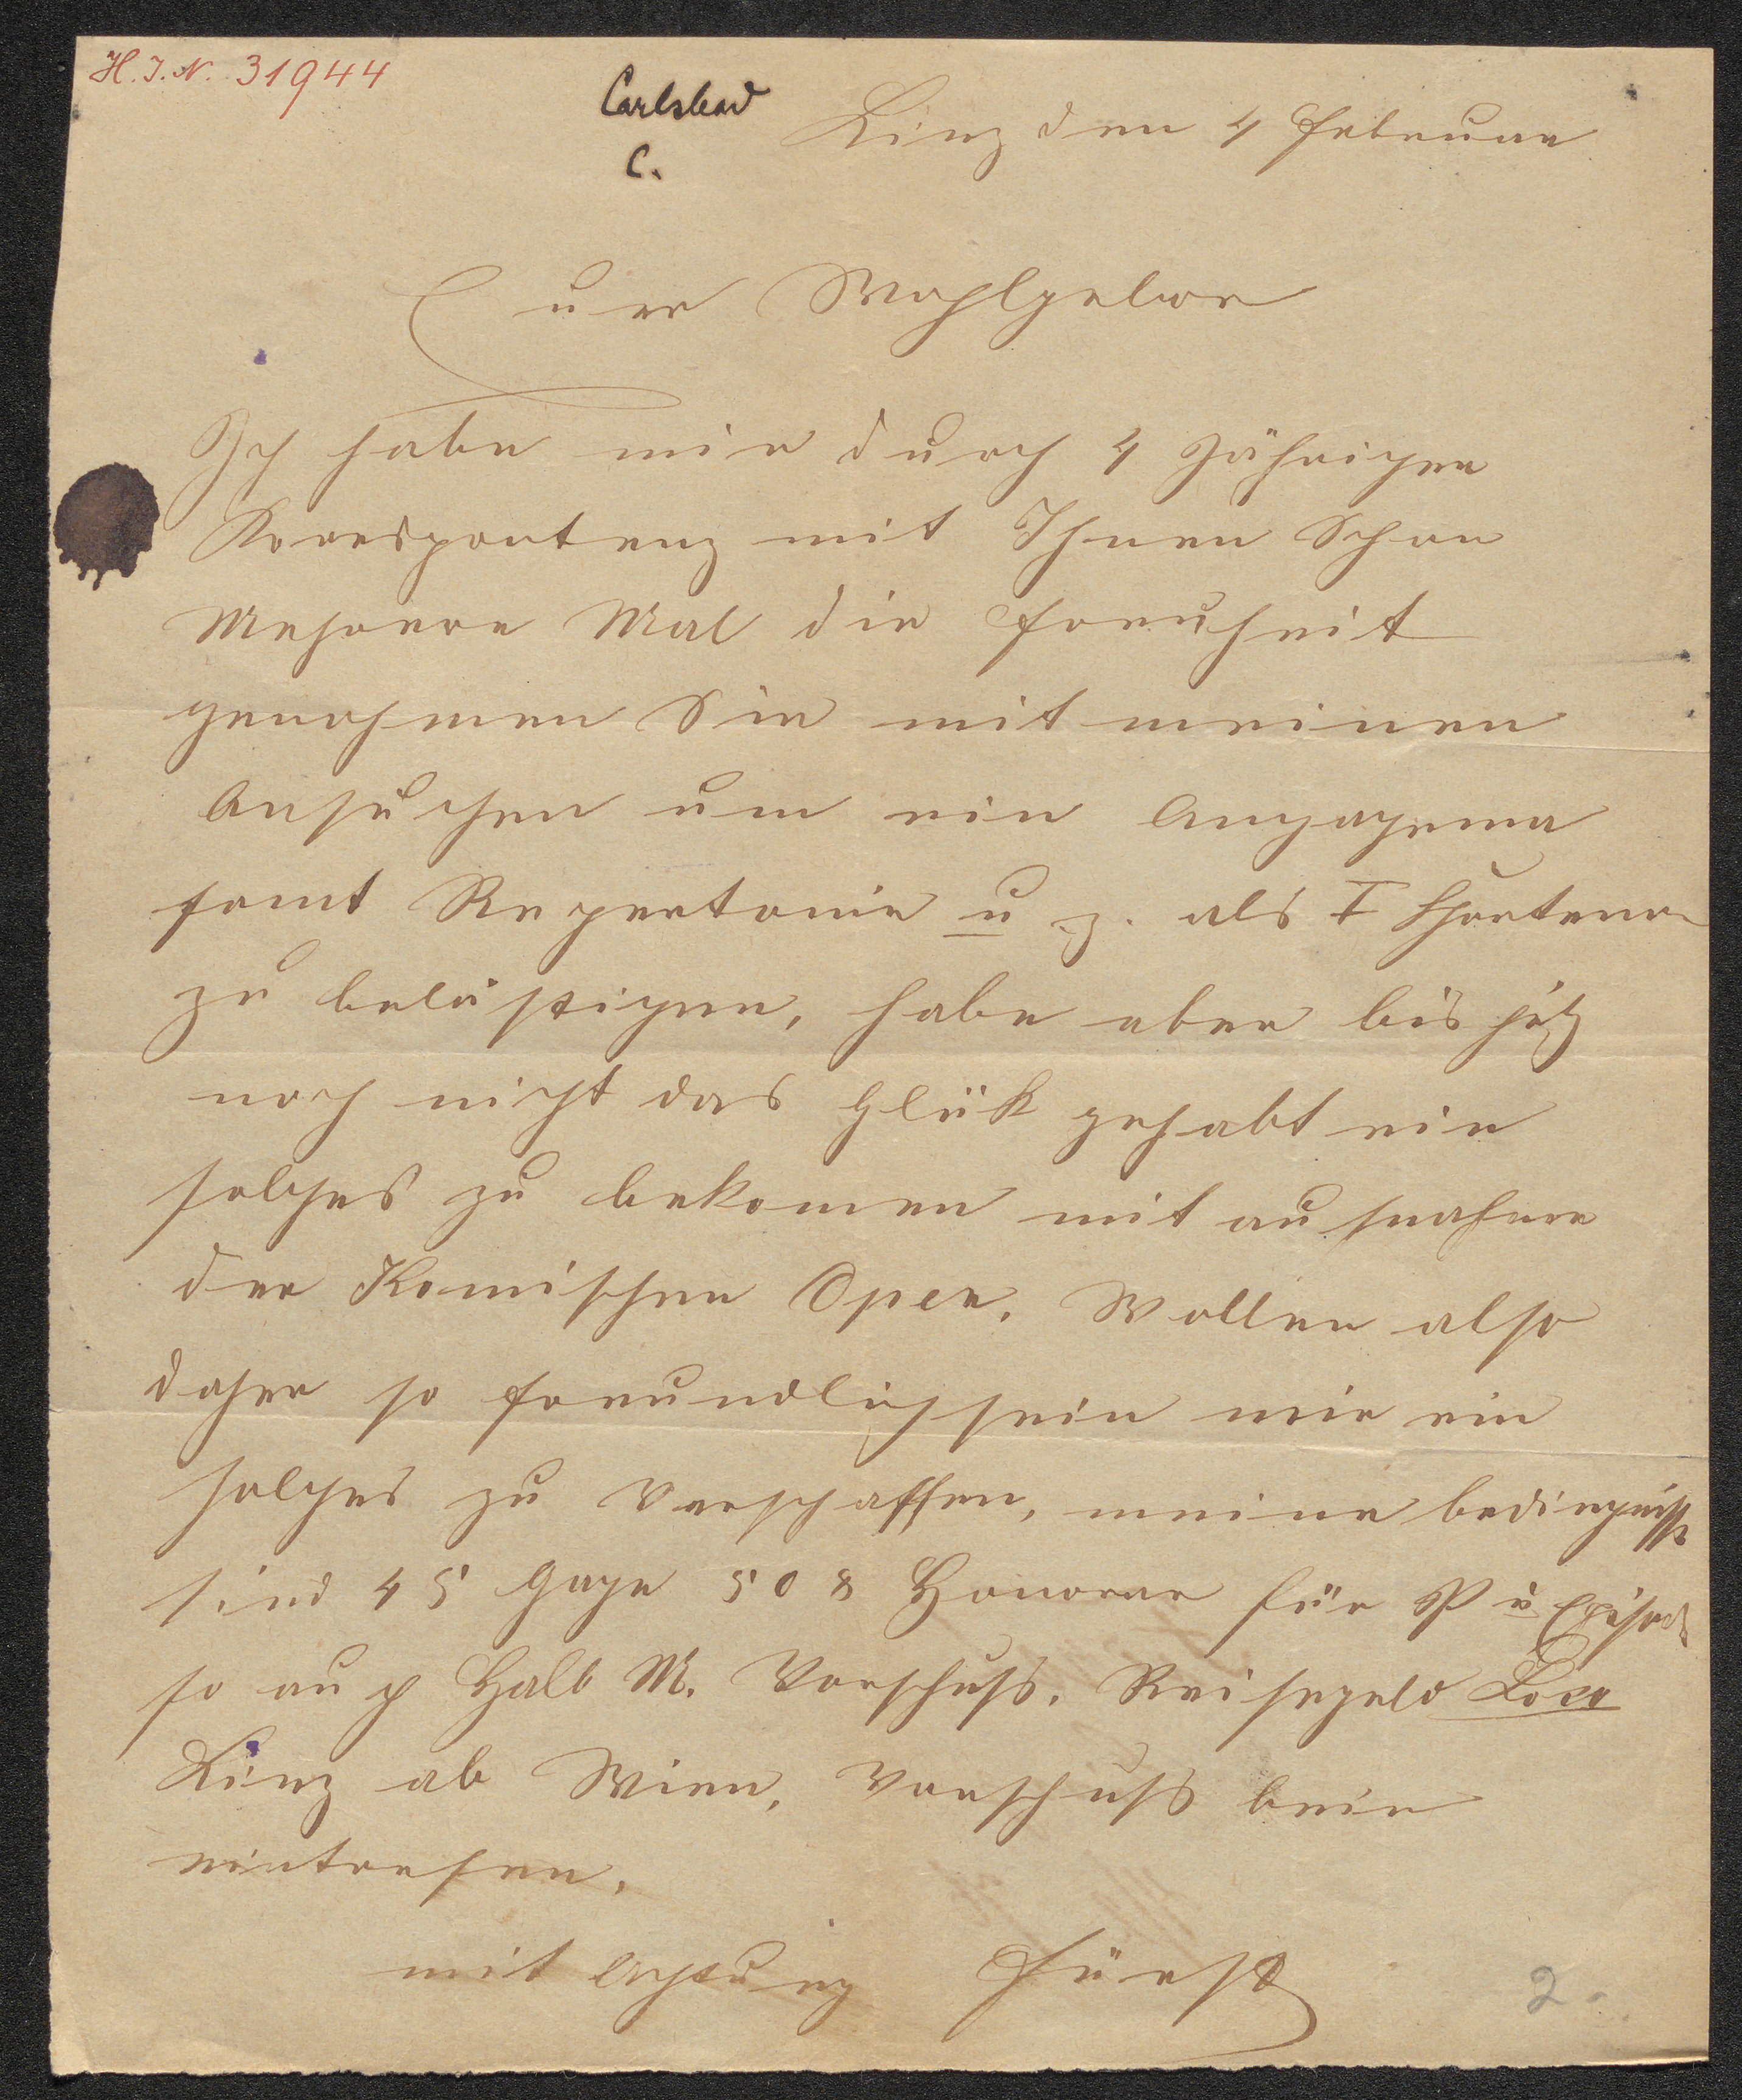 H. I. N. 31944
Carlsbad
C.
Linz den 4 Februar
Euer Wohlgebor
Ich habe mir durch 4 Jährigen
Korespontenz mit Ihnen Schon
Mehrere Mal die Freuheit
genohmen Sie mit meinen
Ansuchen um ein Angagema
samt Repertorie u z. als I Chortenor
zu belästigen, habe aber bis jetz
noch nicht das Glük gehabt ein
solches zu bekomen mit ausnahme
der Komischen Oper. Wollen also
daher so freundlich sein mir ein
solches zu Verschaffen, meine bedingnisse
sind 45 Gage 50 x Honorar für P u Episod
so auch Halb M. Vorschuss. Reisegeld Loco
Linz ab Wien, Vorschuss bein
eintrefen.
mit Achtung Fürst
2.